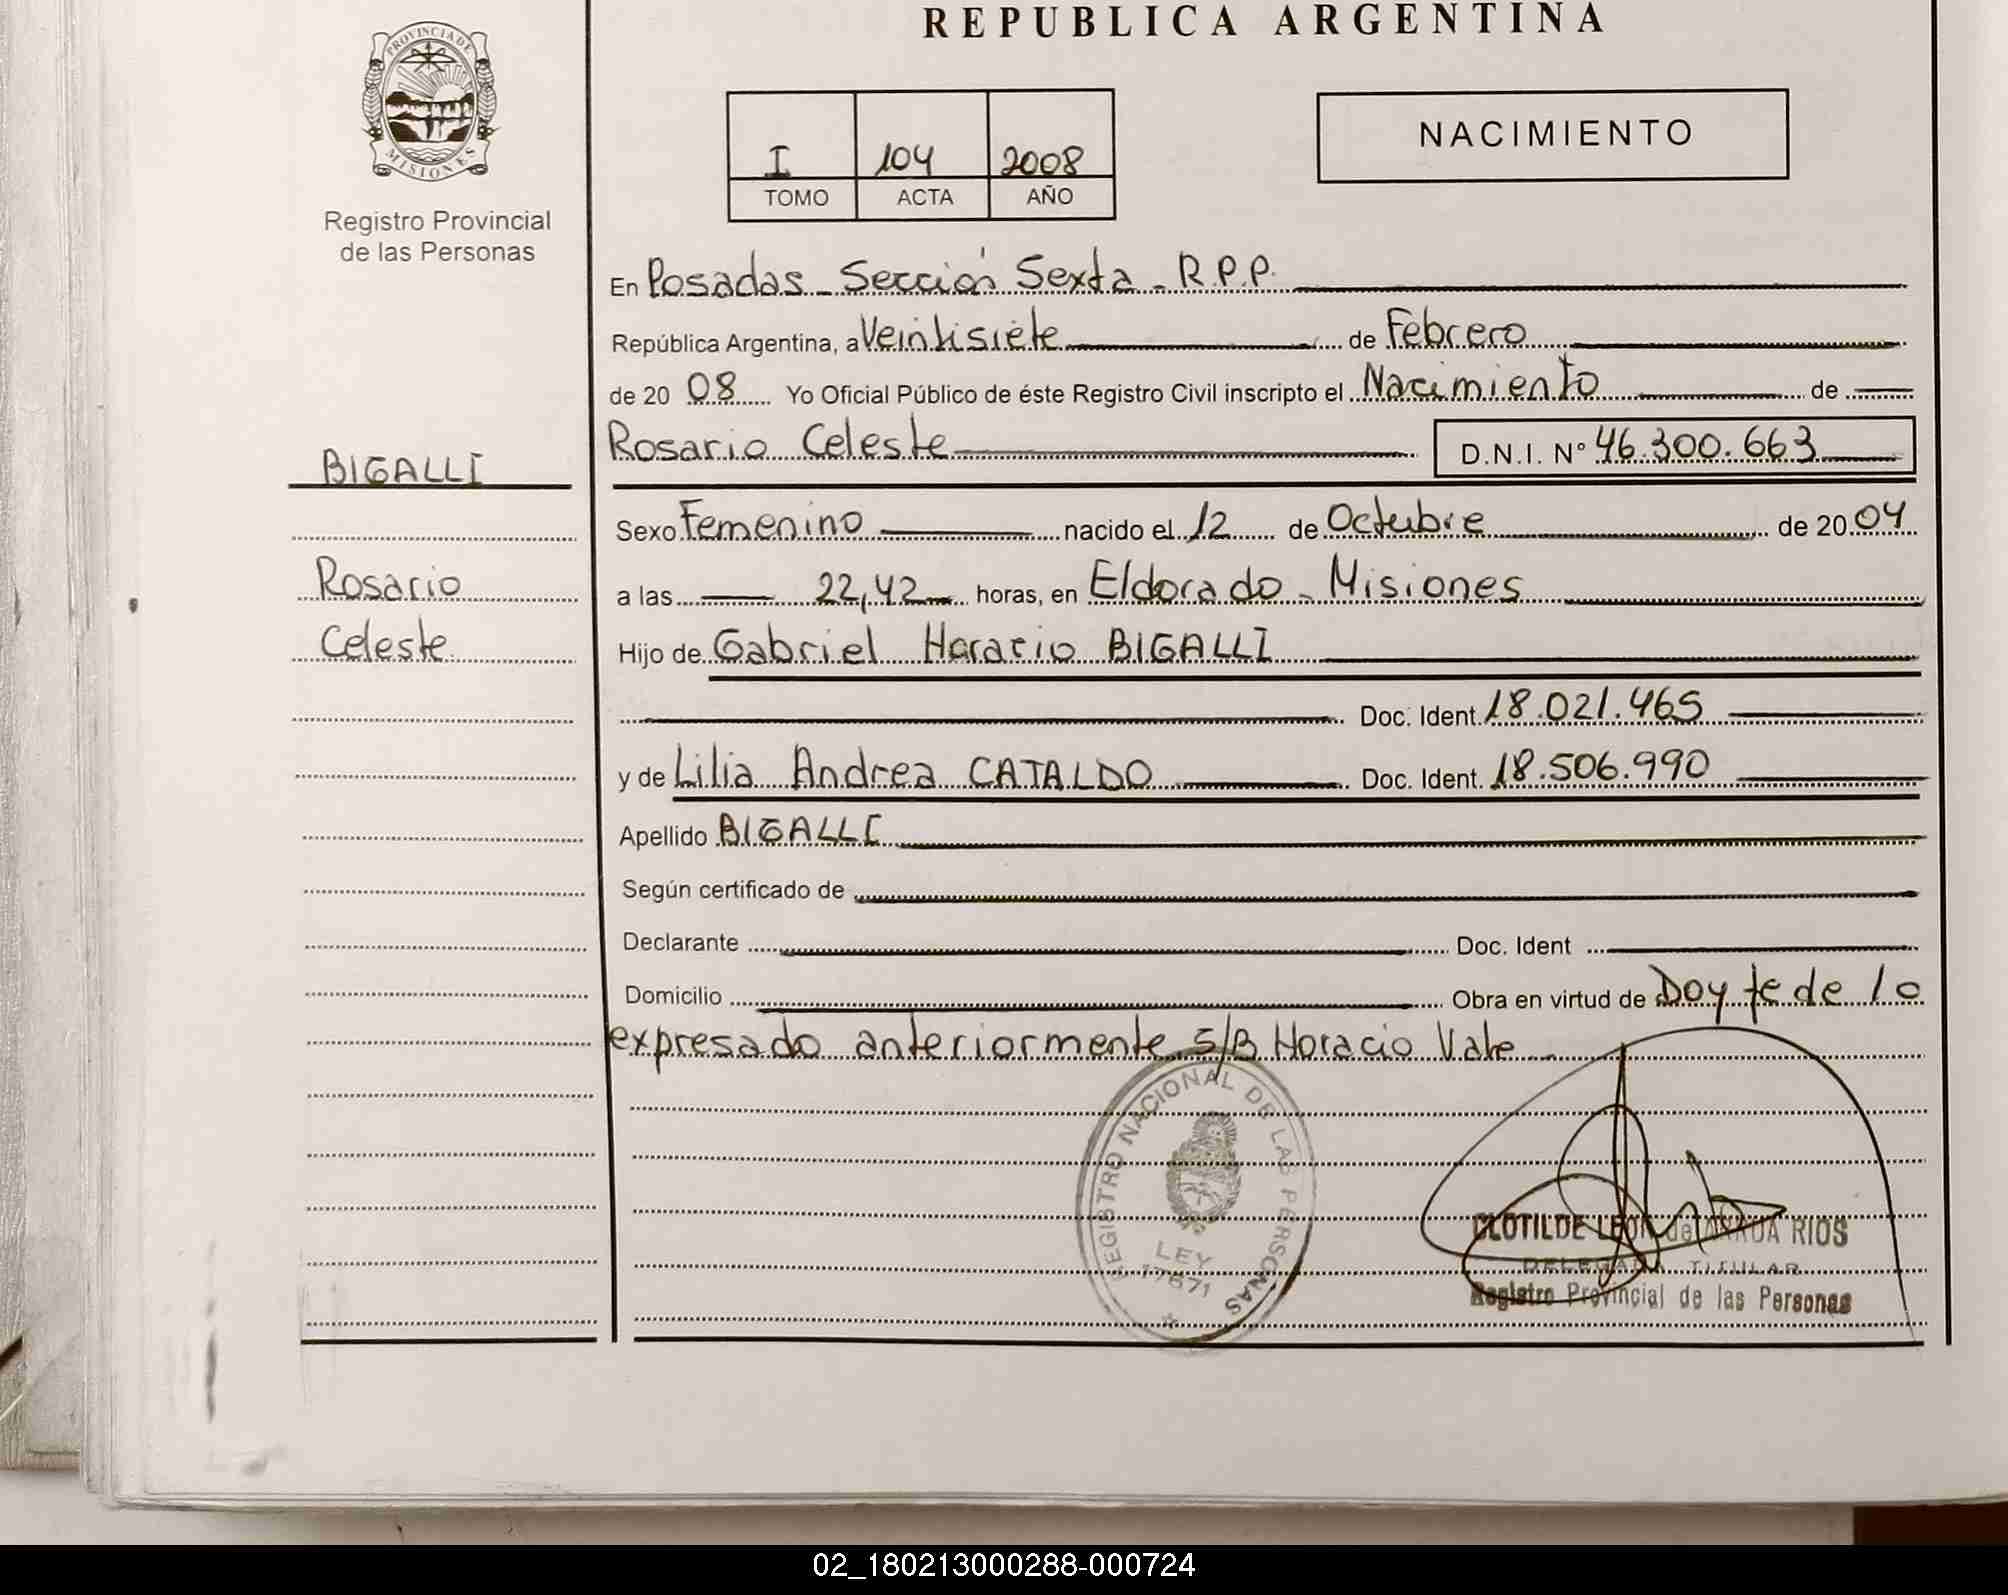 REPUBLICA ARGENTINA
PROVINCIA DE MISIONES
Registro Provincial
de las Personas
I 104 2008
TOMO ACTA AÑO
NACIMIENTO
En Posadas - Sección Sexta - R.P.P.
República Argentina, a Veintisiete de Febrero
de 20 08 Yo Oficial Público de éste Registro Civil inscripto el Nacimiento de
Rosario Celeste D.N.I. Nº 46.300.663
BIGALLI
Rosario
Celeste
Sexo Femenino nacido el 12 de Octubre de 20 04
a las 22,42 horas, en Eldorado - Misiones
Hijo de Gabriel Horacio BIGALLI
Doc. Ident. 18.021.465
y de Lilia Andrea CATALDO Doc. Ident. 18.506.990
Apellido BIGALLI
Según certificado de
Declarante Doc. Ident
Domicilio Obra en virtud de Doy fe de lo
expresado anteriormente S/B Horacio Vale
REGISTRO NACIONAL DE LAS PERSONAS
LEY
17671
CLOTILDE LEON de RIOS
DELEGADA TITULAR
Registro Provincial de las Personas
02_180213000288-000724